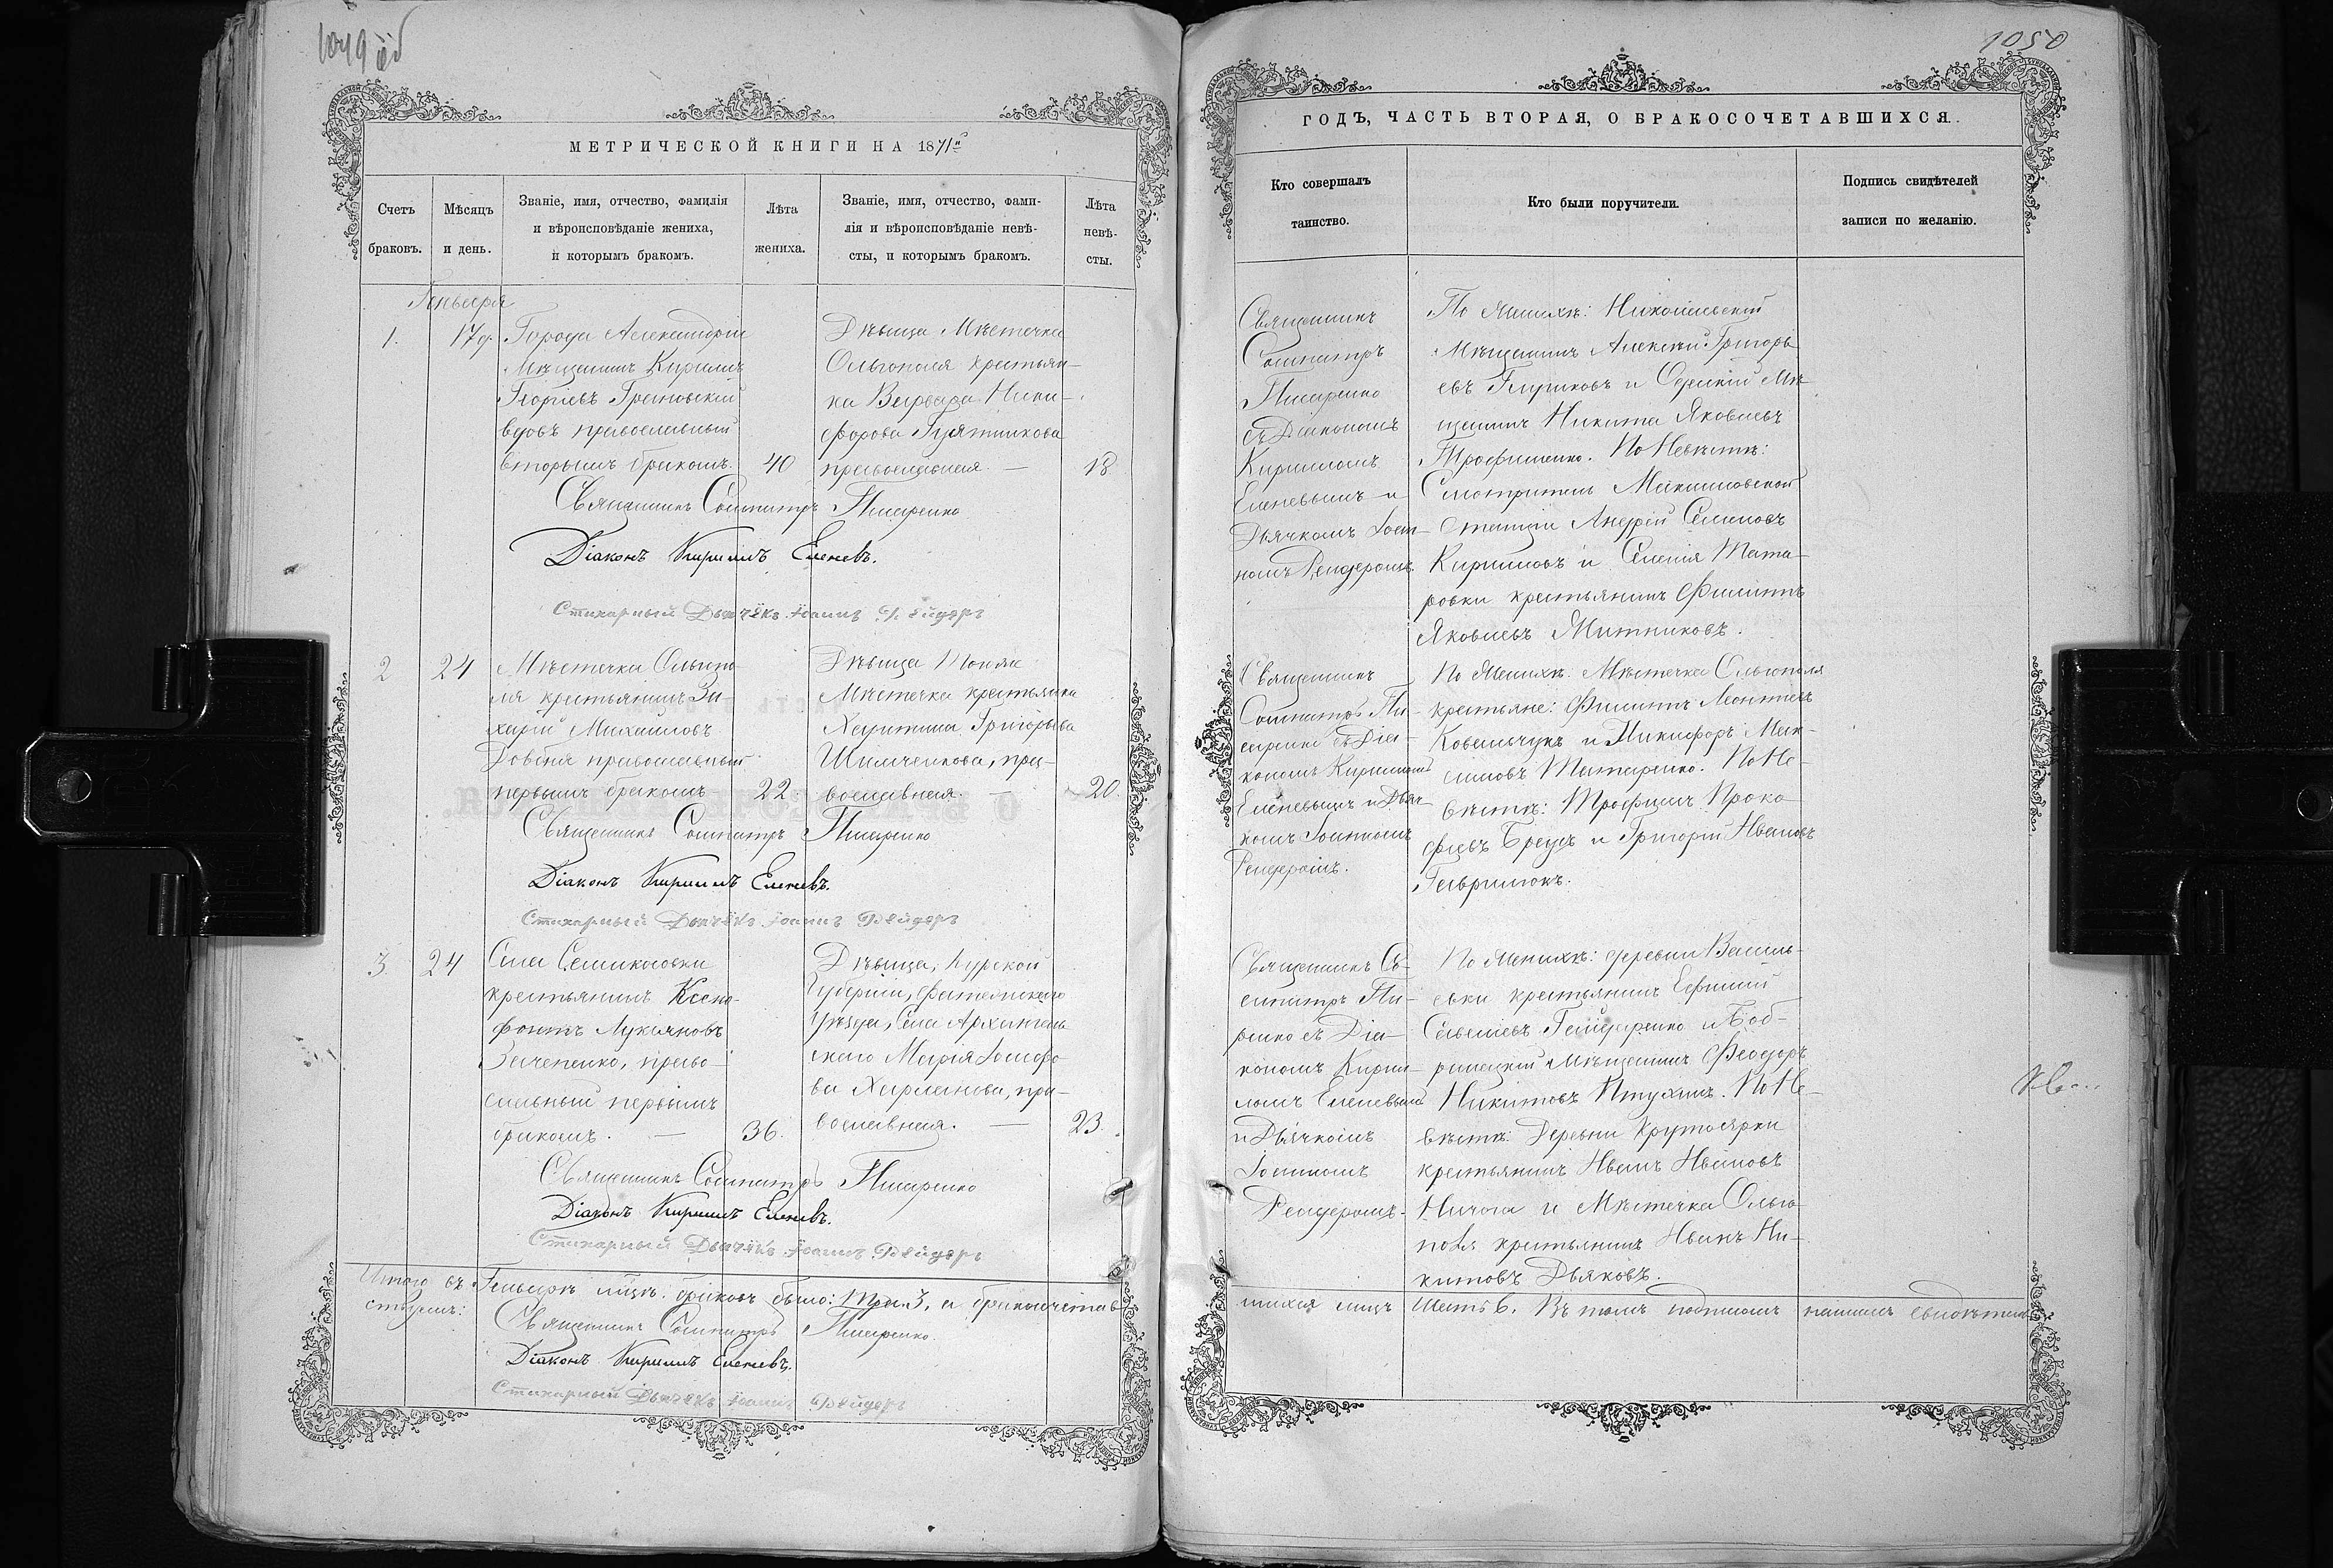 1049 об
МЕТРИЧЕСКОЙ КНИГИ НА 1871й
Счетъ браковъ.
Мѣсяцъ и день.
Званіе, имя, отчество, фамилія
и вѣроисповѣданіе жениха,
и которымъ бракомъ.
Лѣта
жениха.
Званіе, имя, отчество, фами-
лія и вѣроисповѣданіе невѣ-
сты, и которымъ бракомъ.
Лѣта
невѣ-
сты.
Января
1.
17 д.
Города Александріи
Мѣщанинъ Кириллъ
Георгіевъ Грановскій
вдовъ православный
вторымъ бракомъ.
40
Дѣвица Мѣстечка
Ольгополя крестьян-
ка Варвара Ники-
форова
православная. —
18
Священникъ Сосипатръ Писаренко
Діаконъ Кириллъ Еленевъ.
Стихарный Дьячекъ Іоаннъ Рейдеръ
2
24
Мѣстечка Ольгопо-
ля крестьянинъ За-
харій Михайловъ
Довбня православный
первымъ бракомъ
22
Дѣвица того же
Мѣстечка крестьянка
Харитина Григорьева
Шимченкова, пра-
вославная. —
20.
Священникъ Сосипатръ Писаренко
Діаконъ Кириллъ Еленевъ.
Стихарный Дьячекъ Іоаннъ Рейдеръ
3.
24
Села Семикосовки
крестьянинъ Ксено-
фонтъ Лукіяновъ
Зачепенко, право-
славный первымъ
бракомъ. —
36.
Дѣвица, Курской
Губерніи, Фатежскаго
Уѣзда, Села Архангель
скаго Марія Іосифо-
ва Харланова, пра-
вославная. —
23.
Священникъ Сосипатръ Писаренко
Діаконъ Кириллъ Еленевъ.
Стихарный Дьячекъ Іоаннъ Рейдеръ
Итого въ Генварѣ мцѣ браковъ было: три 3, а бракосочетав
ствуемъ:
Священникъ Сосипатръ Писаренко.
Діаконъ Кириллъ Еленевъ.
Стихарный Дьячекъ Іоаннъ Рейдеръ
1050
ГОДЪ, ЧАСТЬ ВТОРАЯ, О БРАКОСОЧЕТАВШИХСЯ.
Кто совершалъ
таинство.
Кто были поручители.
Подпись свидѣтелей
записи по желанію.
Священникъ
Сосипатръ
Писаренко
съ Діакономъ
Кирилломъ
Еленевымъ и
Дьячкомъ Іоан-
номъ Рейдеромъ.
По Женихѣ: Николаевскій
Мѣщанинъ Алексѣй Григорь
евъ Глушковъ и Одесскій Мѣ
щанинъ Никита Яковлевъ
Трофименко. По Невѣстѣ:
Смотритель
станціи Андрей Семеновъ
Кирилловъ и Селенія Тата-
ровки крестьянинъ Филиппъ
Яковлевъ Житниковъ.
Священникъ
Сосипатръ Пи-
саренко съ Діа-
кономъ Кирилломъ
Еленевымъ и Дьяч-
комъ Іоанномъ
Рейдеромъ.
По Женихѣ: Мѣстечка Ольгополя
крестьяне: Филиппъ Леонтьевъ
Ковальчукъ и Никифоръ Мак-
симовъ Татаренко. По Не-
вѣстѣ: Трофимъ Проко
фіевъ и Григорій Ивановъ
Гаврилюкъ.
Священникъ Со-
сипатръ Пи-
ренко съ Діа-
кономъ Кирил-
ломъ Еленевымъ
и Дьячкомъ
Іоанномъ
Рейдеромъ.
По Женихѣ: деревни Василь-
евки крестьянинъ Ефимій
Савеліевъ Гайдаренко и Боб-
ринецкій Мѣщанинъ Феодоръ
Никитовъ Птухинъ. По Не-
вѣстѣ: Деревни Крутоярки
крестьянинъ Иванъ Ивановъ
Ничога и Мѣстечка Ольго
поля крестьянинъ Иванъ Ни-
китовъ Дьяковъ.
шихся лицъ Шесть 6. Въ томъ подписомъ нашимъ свидѣтель